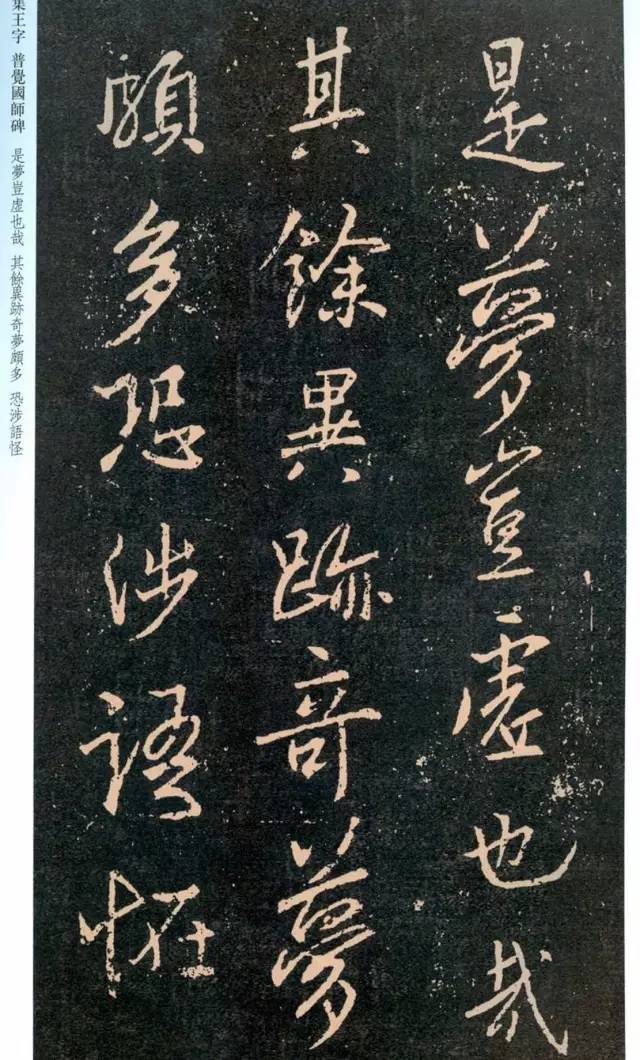 是夢豈虛也哉
其餘異跡奇夢
頗多恐涉語怪
集王字 普覺國師碑 是夢豈虛也哉 其餘異跡奇夢頗多 恐涉語怪